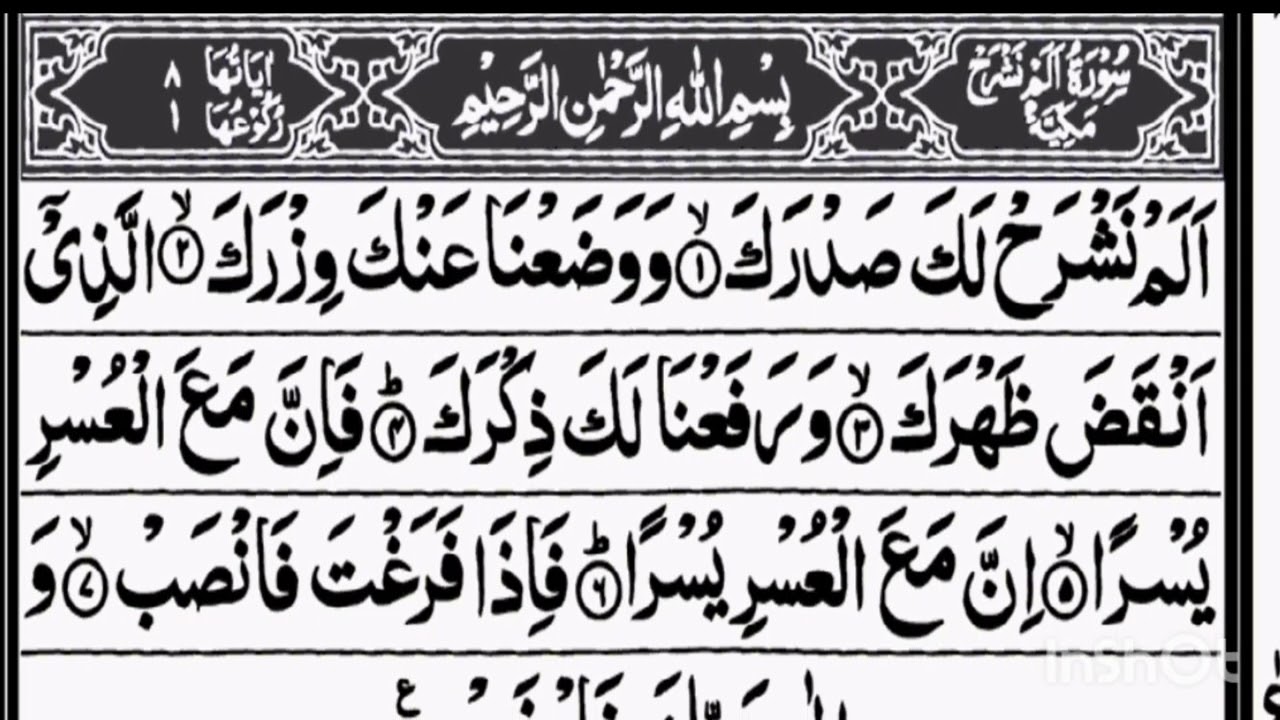 سُوْرَةُ اَلَمْ نَشْرَحْ مَكِّيَّةٌ
بِسْمِ اللّٰهِ الرَّحْمٰنِ الرَّحِيْمِ
اٰيَاتُهَا ٨
رُكُوْعُهَا ١
اَلَمْ نَشْرَحْ لَكَ صَدْرَكَ ۙ﴿١﴾ وَوَضَعْنَا عَنْكَ وِزْرَكَ ۙ﴿٢﴾ الَّذِيْٓ
اَنْقَضَ ظَهْرَكَ ۙ﴿٣﴾ وَرَفَعْنَا لَكَ ذِكْرَكَ ؕ﴿۴﴾ فَاِنَّ مَعَ الْعُسْرِ
يُسْرًا ۙ﴿۵﴾ اِنَّ مَعَ الْعُسْرِ يُسْرًا ؕ﴿۶﴾ فَاِذَا فَرَغْتَ فَانْصَبْ ۙ﴿٧﴾ وَ
InShOt